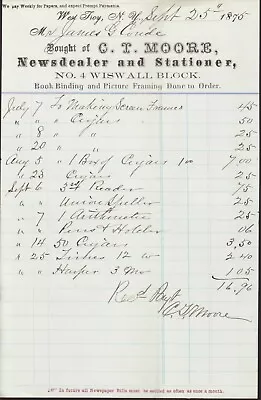 We pay Weekly for Papers, and expect Prompt Payments.
West Troy, N. Y. Sept 25" 1875
Mr James G Conde
Bought of C. T. MOORE,
Newsdealer and Stationer,
NO. 4 WISWALL BLOCK.
Book Binding and Picture Framing Done to Order.
July 7 To Making Screen Frames 45
" " " Cigars 50
" 8 " " 25
" 20 " " 25
Aug 5 " 1 Box of Cigars 7.00
" 23 Cigars 25
Sept 6 3rd Reader 75
" " Union Speller 25
" 7 1 Arithmetic 25
" " Pens & Holder 06
" 14 50 Cigars 3.50
" 25 12 w 2.40
" " Harper 3 Mo 1.05
16.96
Recd Payt
C. T. Moore
In future all Newspaper Bills must be settled as often as once a month.